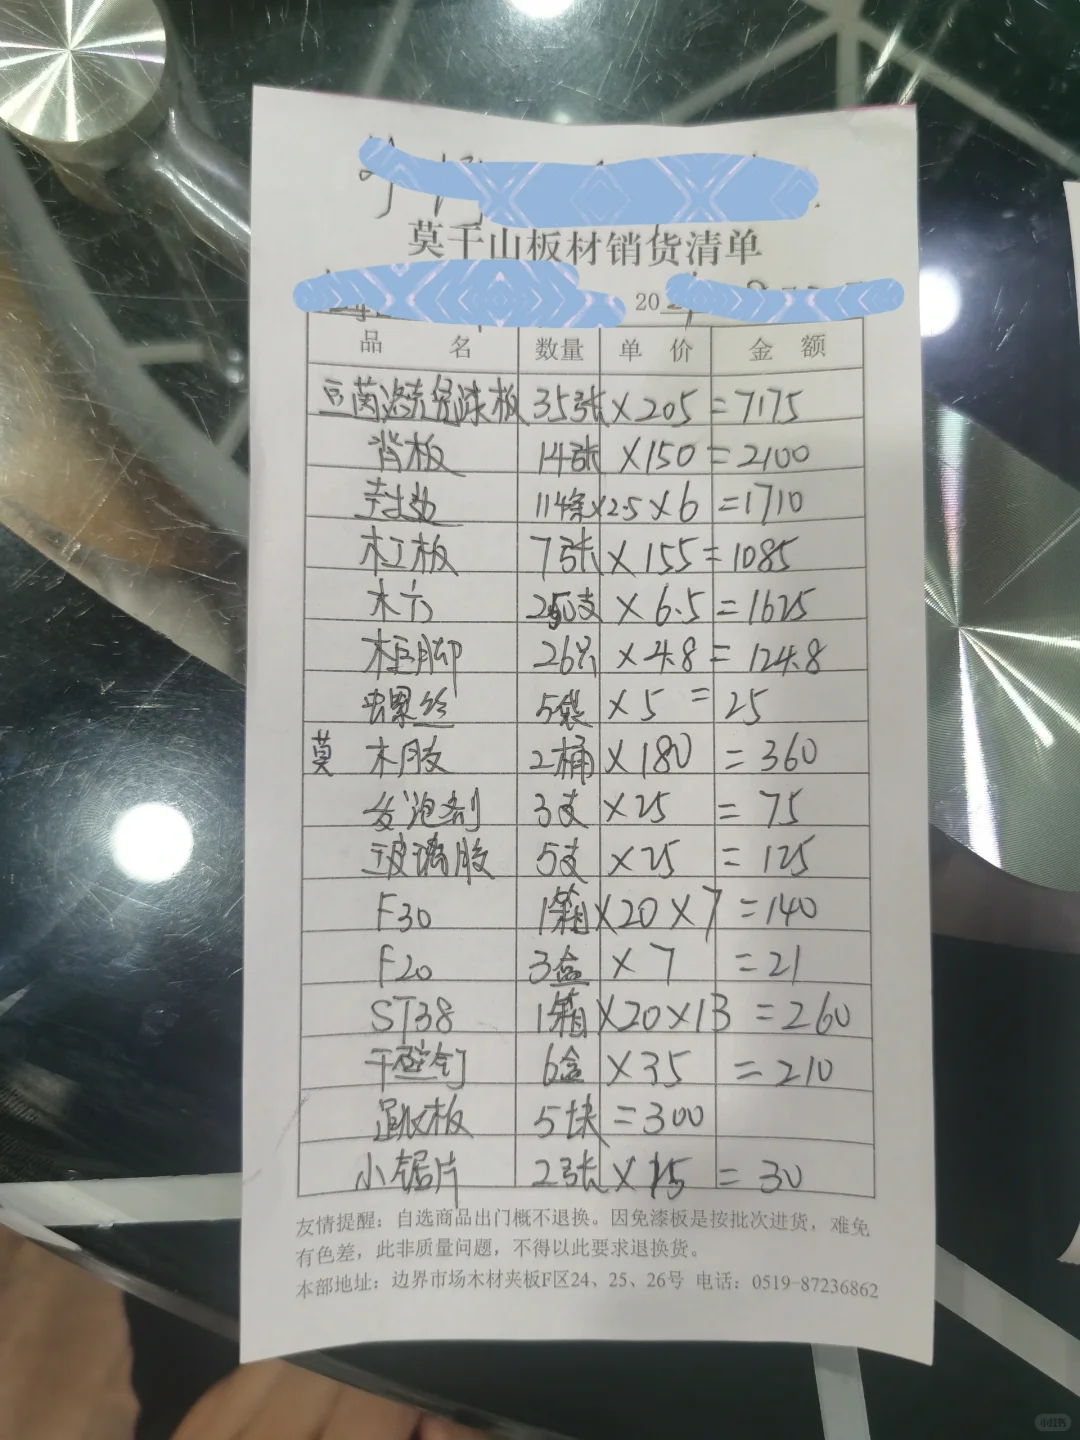 莫干山板材销货清单
20
品 名 数量 单 价 金 额
豆茵涤壳免漆板 35张 × 205 = 7175
背板 14张 × 150 = 2100
封边 114条 × 2.5 × 6 = 1710
木工板 7张 × 155 = 1085
木方 250支 × 6.5 = 1625
柜脚 26只 × 4.8 = 124.8
螺丝 5袋 × 5 = 25
莫 木胶 2桶 × 180 = 360
发泡剂 3支 × 25 = 75
玻璃胶 5支 × 25 = 125
F30 1箱 × 20 × 7 = 140
F20 3盒 × 7 = 21
ST38 1箱 × 20 × 13 = 260
干壁钉 6盒 × 35 = 210
板 5块 = 300
小锯片 2张 × 15 = 30
友情提醒：自选商品出门概不退换。因免漆板是按批次进货，难免
有色差，此非质量问题，不得以此要求退换货。
本部地址：边界市场木材夹板F区24、25、26号 电话：0519-87236862
小红书